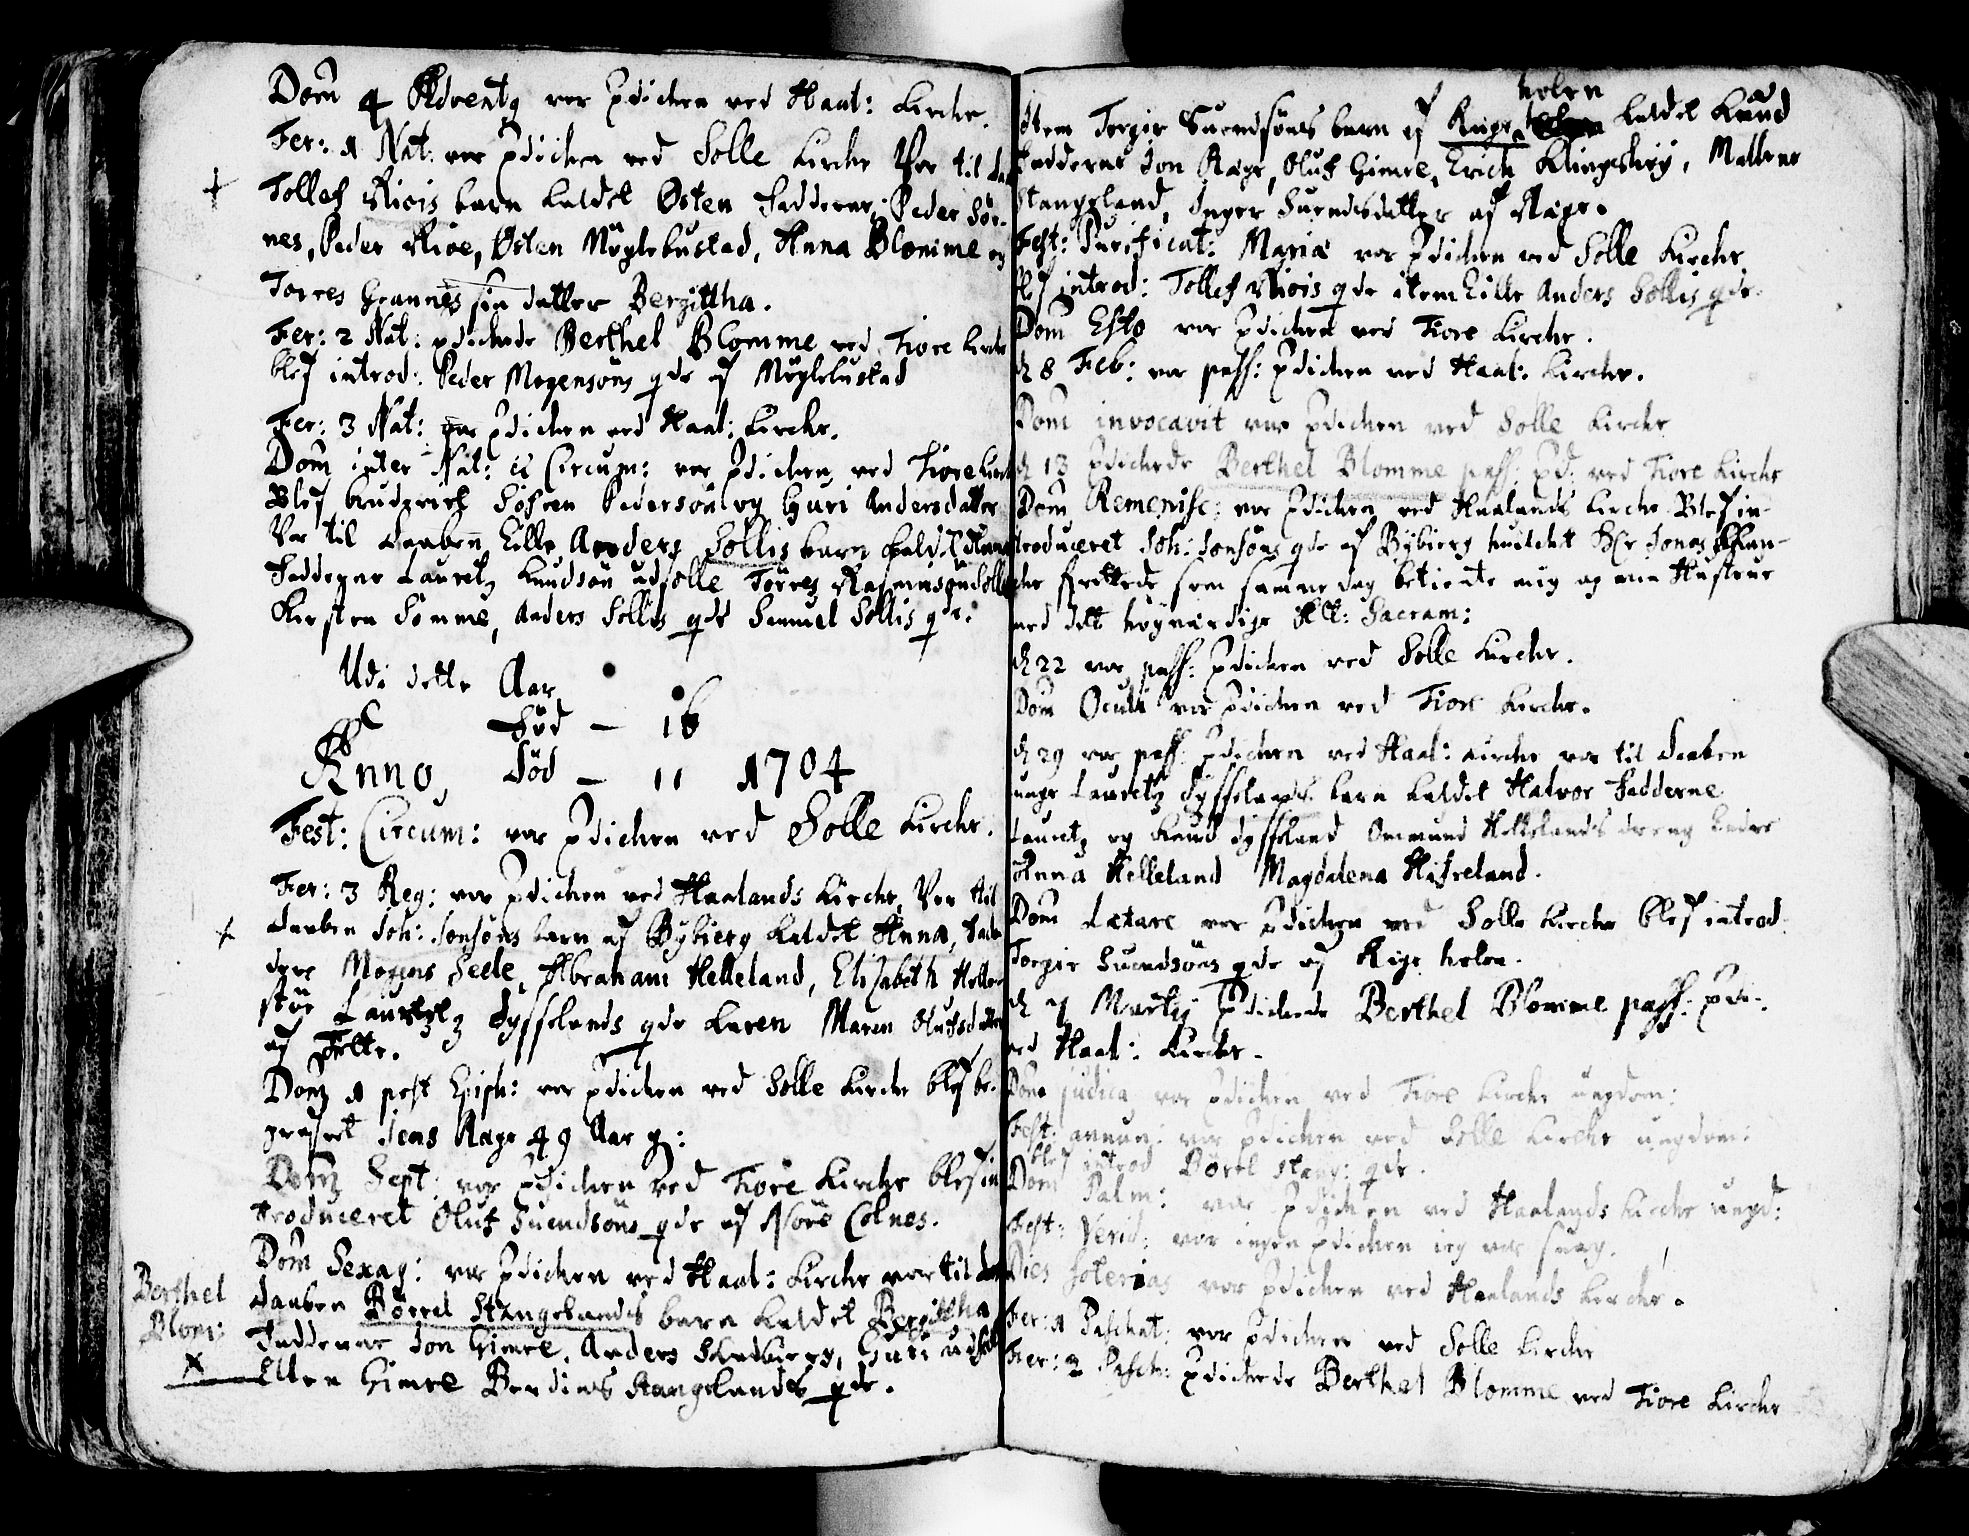 Dom 4 Adventg var Prdichen ved Haal: Kirche.
Fer: 1 Nat: var Prdichen ved Solle Kirche Var til da
Tollef Riois barn kaldet Østen Fadderne Peder Sør-
nes, Peder Rioe, Østen Møglebustad, Anna Blomme og
Torres Grannes sin datter Bergittha.
Fer: 2 Nat: prdichede Berthel Blomme ved Tiore Kirche
blef introd: Peder Mogensøns qde af Møglebustad
Fer: 3 Nat: var Prdichen ved Haal: Kirche.
Dom inter Nat: & Circum: var Prdichen ved Tiore Kirch
Blef brudeviet Søfren Pedersøn og Guri Andersdatter
Var til daaben Lille Anders Sollis barn kaldet Anna
Fadderne Lauretz Knudsøn udsolle Torres Rasmusøn Solle
Kirsten Sømme, Anders Sollis qde Samuel Sollis qde.
Udi dette Aar
Fød – 16
Død – 11
Anno 1704
Fest: Circum: var Prdichen ved Solle Kirche.
Fer: 3 Reg: var Prdichen ved Haalands Kirche, Var til
daaben Joh: Jonsøns barn af Bybierg kaldet Anna, Fad-
dere Mogens Seele, Abraham Helleland, Elisabeth Helle-
støe Lauretz Syffelands qde Karen Maren Olufsdatter
af Tielte.
Dom 1 post Epiph: var Prdichen ved Solle Kirche blef be-
grafvet Jens Ræge 49 Aar g:
Dom Sept: var Prdichen ved Tiore Kirche blef in
troduceret Oluf Suendsøns qde af Nøre Colnes.
Dom Sexag: var Prdichen ved Haal: Kirche var til
Berthel
Blom:
daaben Børrel Stangelands barn kaldet Bergittha
Fadderne Jon Gimre, Anders Skadberg, Guri udsol
Ellen Gimre Berdines Stangelands qde.
holen
Item Torgir Suendsøns barn af Rige kaldet Knud
Fadderne Jon Ræge, Oluf Gimre, Erich Klingshøy, Mallene
Stangeland, Inger Suendsdatter af Ræge.
Fest: Purificat: Mariæ var Prdichen ved Solle Kirche
blef introd: Tollef Riois qde item Lille Anders Sollis qde.
Dom Esto var Prdichen ved Tiore Kirche.
d 8 Feb: var pass: Prdichen ved Haal: Kirche.
Dom invocavit var Prdichen ved Solle Kirche
d 13 Prdichede Berthel Blomme pass: pd: ved Tiore Kirche
Dom Remenisc: var Prdichen ved Haalands Kirche. Blef in-
troduceret Joh: Jonsøns qde af Bybierg huilchet Hr Jonas
som samme dag betiente mig og min Hustrue
med dett høyværdige Alt: Sacram:
d 22 var pass: Prdichen ved Solle Kirche.
Dom Oculi var Prdichen ved Tiore Kirche.
d 29 var pass: Prdichen ved Haal: Kirche var til daaben
unge Lauretz Syffelands barn kaldet Halvor Fadderne
Lauretz og Knud Syffeland Omund Hellelands dreng Peder
Anna Helleland Magdalena Hafreland.
Dom Lætare var Prdichen ved Solle Kirche blef introd
Torgir Suendsøns qde af Rige holen.
d 7 Martij Prdichede Berthel Blomme pass: Prdi:
ved Haal: Kirche.
Dom judica var Prdichen ved Tiore Kirche ungdom:
Fest: annun: var Prdichen ved Solle Kirche ungdom:
blef introd Børel Stang: qde.
Dom Palm: var Prdichen ved Haalands Kirche ungd:
Fest: Virid: var ingen Prdichen ieg var suag.
Dies soterias var Prdichen ved Haalands Kirche.
Fer: 1 Paschat: var Prdichen ved Solle Kirche
Fer: 2 Pasch: Prdichede Berthel Blomme ved Tiore Kirche